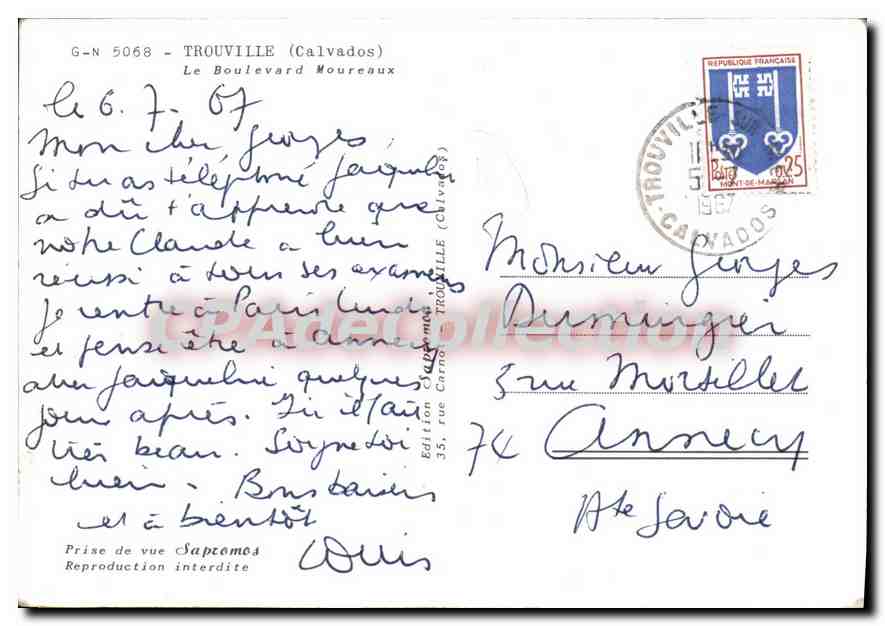 G-N 5068 - TROUVILLE (Calvados)
Le Boulevard Moureaux
le 6. 7. 67
Mon cher Georges,
Si tu as téléphoné Jacqueline
a dû t'apprendre que
notre Claude a bien
réussi à tous ses examens
Je rentre à Paris lundi
et pense être à Annecy
avec Jacqueline quelques
jours après. Ici il fait
très beau. Soigne toi
bien. Bons baisers
et à bientôt
Louis
Prise de vue Sapromos
Reproduction interdite
Edition Sapromos
35, rue Carnot - TROUVILLE (Calvados)
REPUBLIQUE FRANÇAISE
0,25
MONT-DE-MARSAN
TROUVILLE SUR
5
1967
CALVADOS
Monsieur Georges
3 rue Mortillet
74 Annecy
Hte Savoie
CPAdeCollection